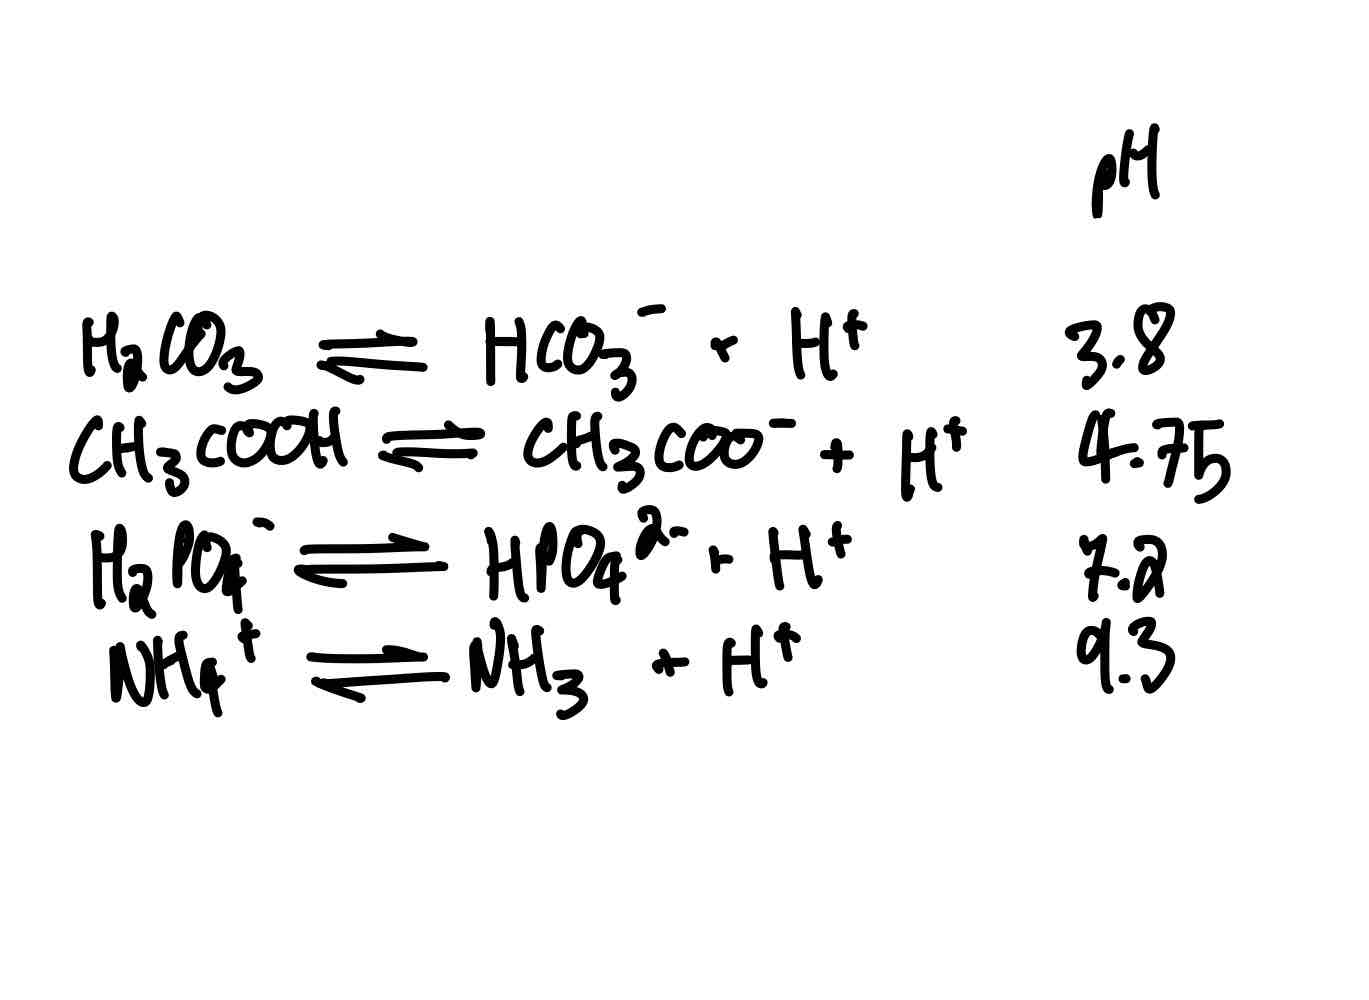 pH
H₂CO₃ ⇌ HCO₃⁻ + H⁺ 3.8
CH₃COOH ⇌ CH₃COO⁻ + H⁺ 4.75
H₂PO₄⁻ ⇌ HPO₄²⁻ + H⁺ 7.2
NH₄⁺ ⇌ NH₃ + H⁺ 9.3